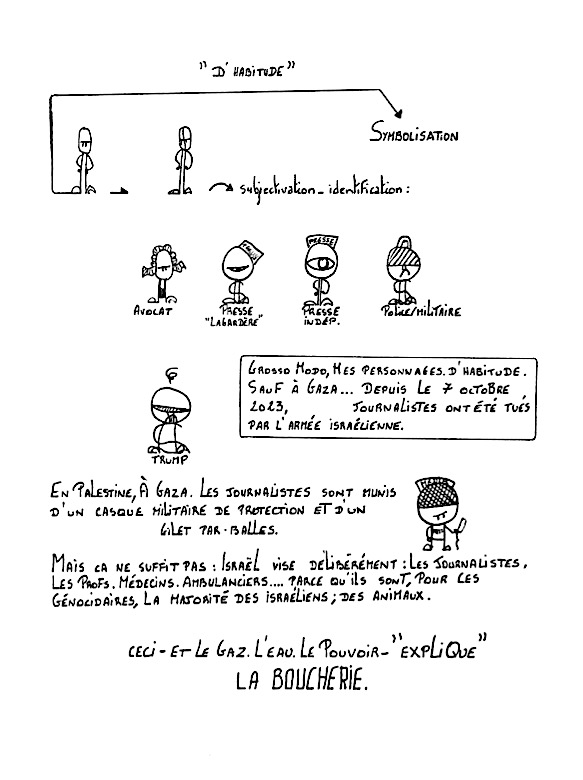 "D'HABITUDE"
SYMBOLISATION
subjectivation_identification:
PRESSE
PRESSE
AVOCAT
PRESSE
"LAGARDÈRE"
PRESSE
INDÉP.
POLICE/MILITAIRE
GROSSO MODO, MES PERSONNAGES. D'HABITUDE.
SAUF À GAZA... DEPUIS LE 7 OCTOBRE
2023, JOURNALISTES ONT ÉTÉ TUÉS
PAR L'ARMÉE ISRAÉLIENNE.
TRUMP
EN PALESTINE, À GAZA. LES JOURNALISTES SONT MUNIS
D'UN CASQUE MILITAIRE DE PROTECTION ET D'UN
GILET PAR-BALLES.
PRESSE
MAIS CA NE SUFFIT PAS : ISRAËL VISE DÉLIBÉRÉMENT : LES JOURNALISTES.
LES PROFS. MÉDECINS. AMBULANCIERS.... PARCE QU'ILS SONT, POUR CES
GÉNOCIDAIRES, LA MAJORITÉ DES ISRAÉLIENS ; DES ANIMAUX.
CECI - ET LE GAZ. L'EAU. LE POUVOIR - "EXPLIQUE"
LA BOUCHERIE.